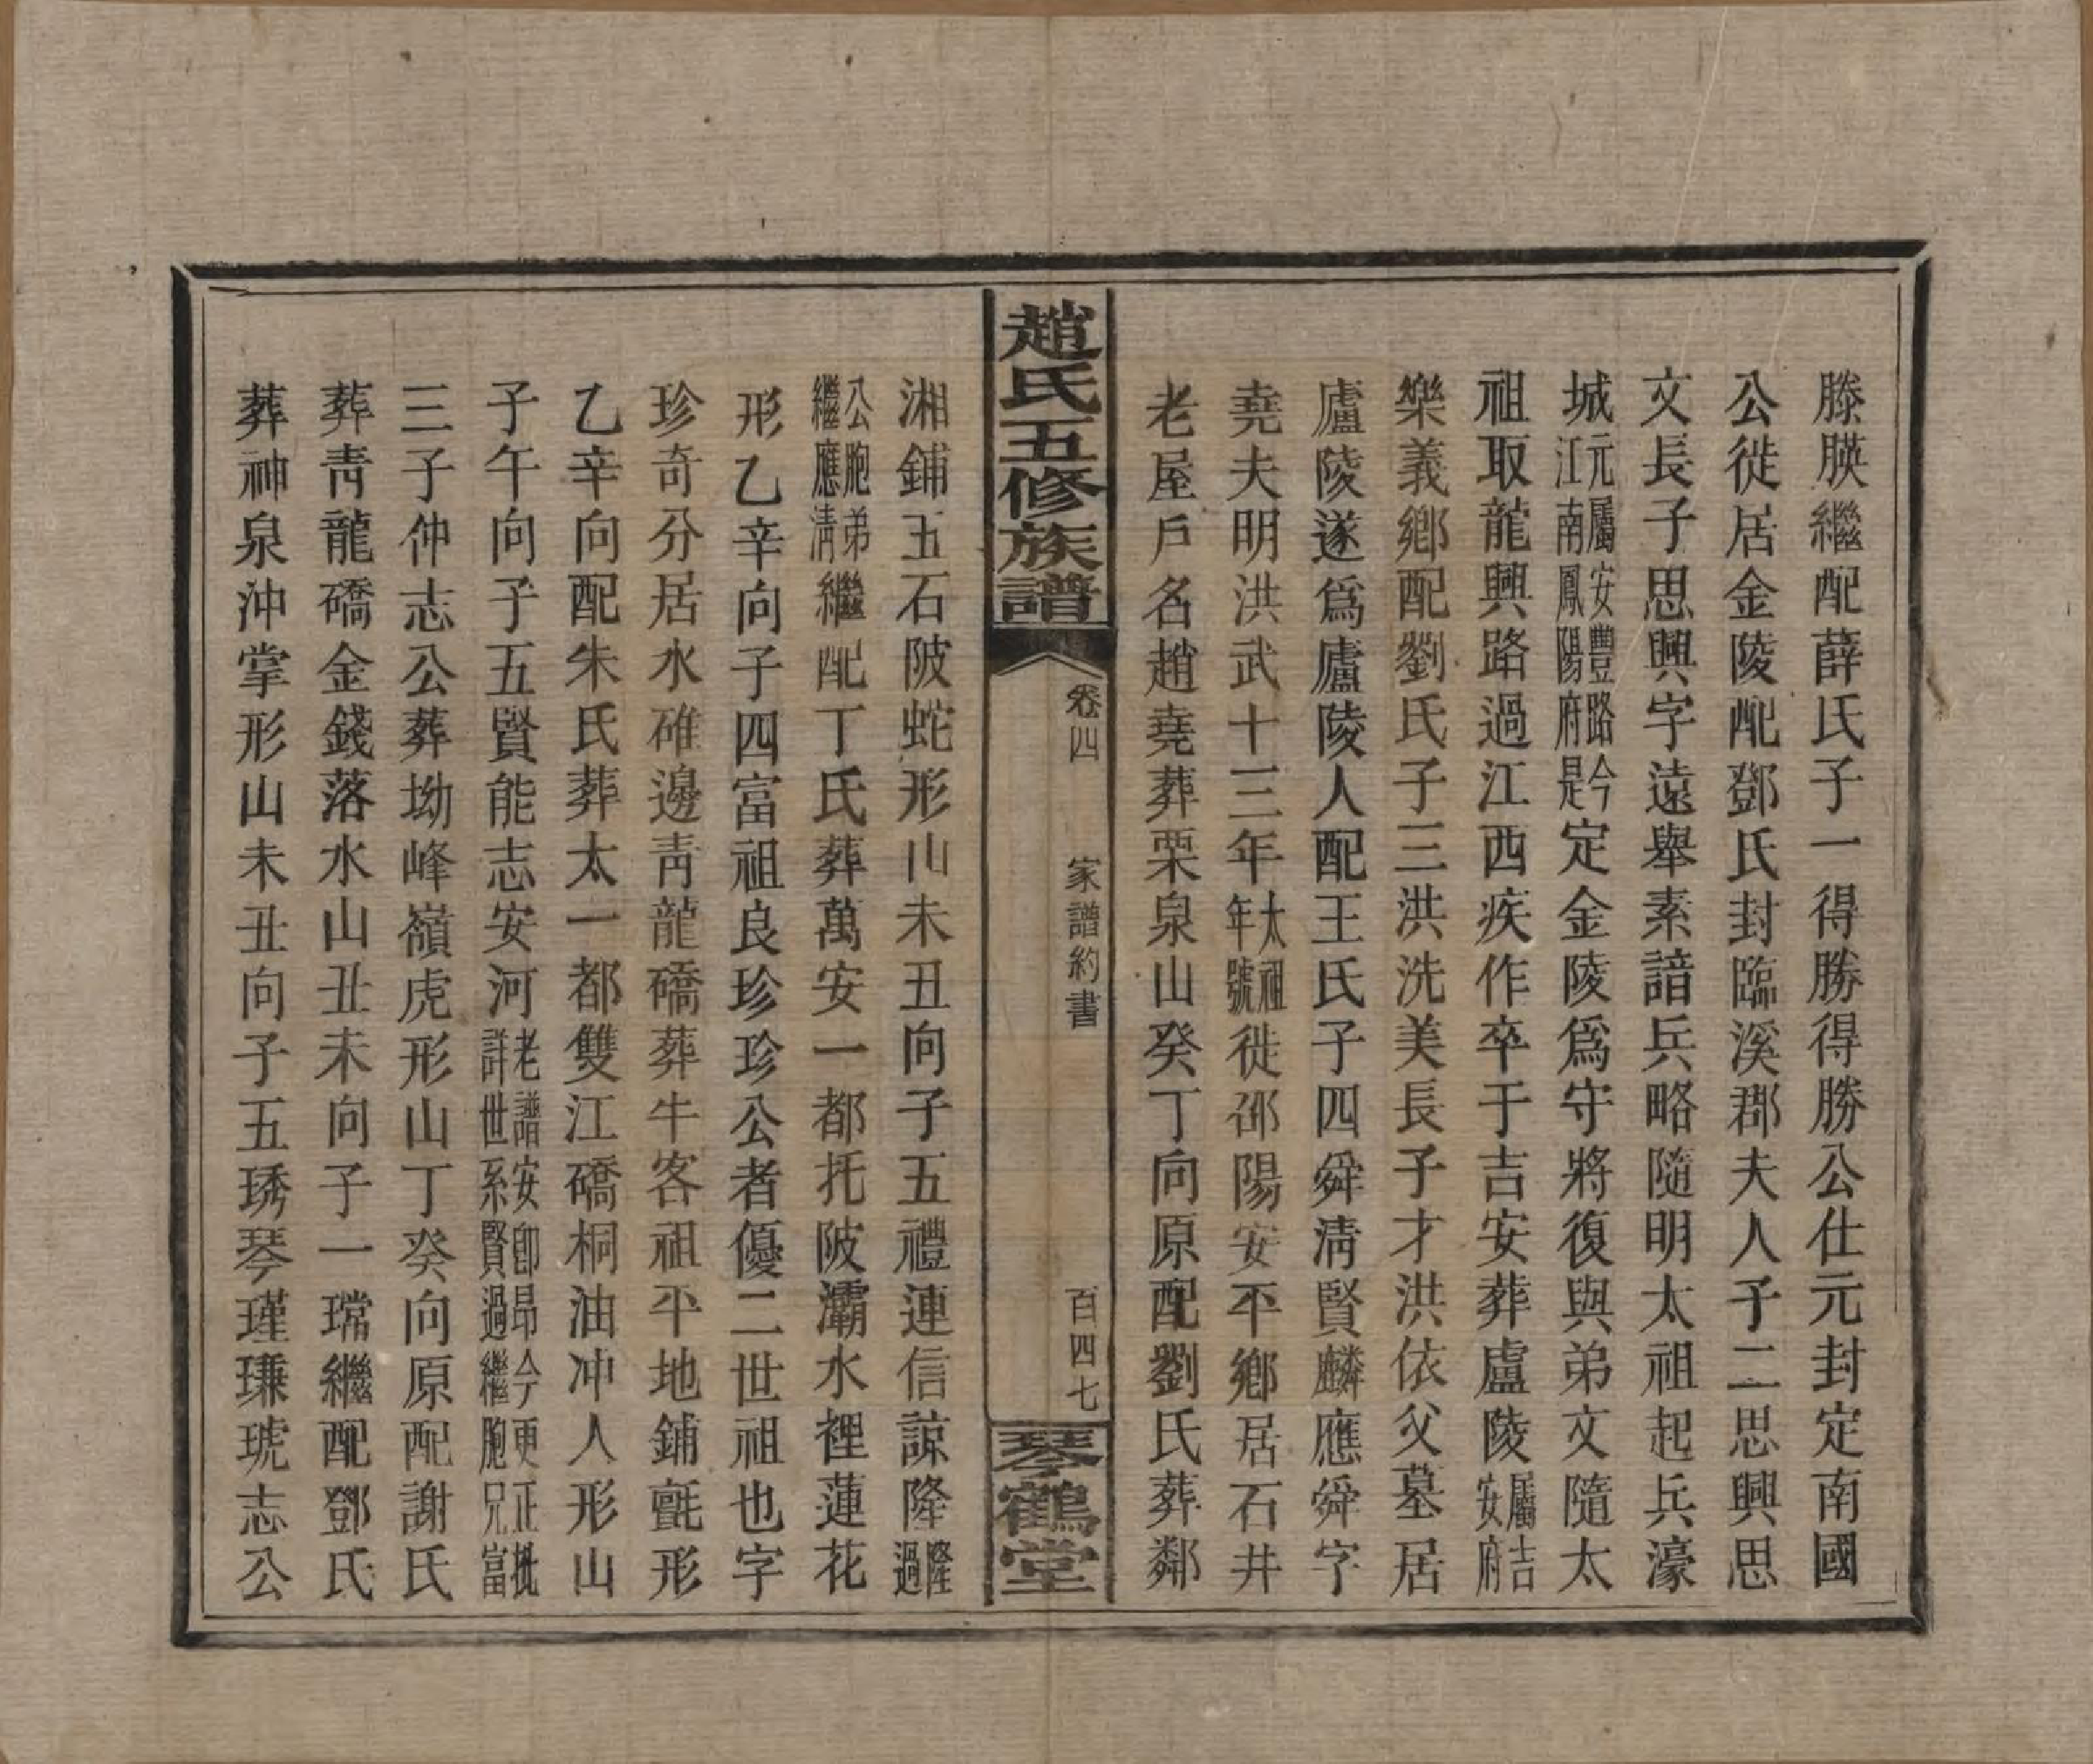 滕膜繼配薛氏子一得勝得勝公仕元封定南國
公徙居金陵配鄧氏封臨溪郡夫人子二思興思
文長子思興字遠舉素諳兵略隨明太祖起兵濠
城元屬安豐路今江南鳳陽府是定金陵爲守將復與弟文隨太
祖取龍興路過江西疾作卒于吉安葬盧陵屬吉安府
樂義鄉配劉氏子三洪洗美長子才洪依父墓居
廬陵遂爲廬陵人配王氏子四舜清賢麟應舜字
堯夫明洪武十三年太祖年號徙邵陽安平鄉居石井
老屋戶名趙堯葬栗泉山癸丁向原配劉氏葬鄰
趙氏五修族譜
卷四
家譜約書
百四七
琴鶴堂
湘鋪五石陂蛇形山未丑向子五禮連信諒隆隆過
公胞弟繼應清繼配丁氏葬萬安一都托陂灞水裡蓮花
形乙辛向子四富祖良珍珍公者優二世祖也字
珍奇分居水碓邊青龍礄葬牛客祖平地鋪氈形
乙辛向配朱氏葬太一都雙江礄桐油冲人形山
子午向子五賢能志安河老譜安卽昂今更正批詳世系賢過繼胞兄富
三子仲志公葬坳峰嶺虎形山丁癸向原配謝氏
葬青龍礄金錢落水山丑未向子一瑺繼配鄧氏
葬神泉沖掌形山未丑向子五琇琴瑾琜琥志公